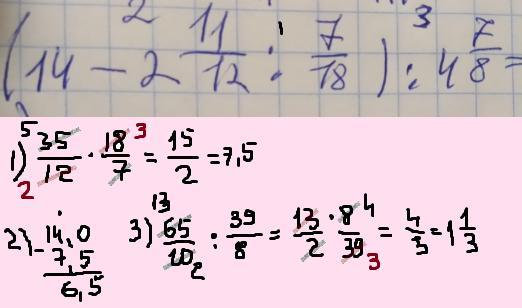 2 1 3
(14 - 2 11/12 : 7/18) : 4 7/8 =
1) 35/12 · 18/7 = 15/2 = 7,5
5 2 3
2) 14,0 - 7,5 = 6,5
3) 65/10 : 39/8 = 13/2 · 8/39 = 4/3 = 1 1/3
13 2 4 3